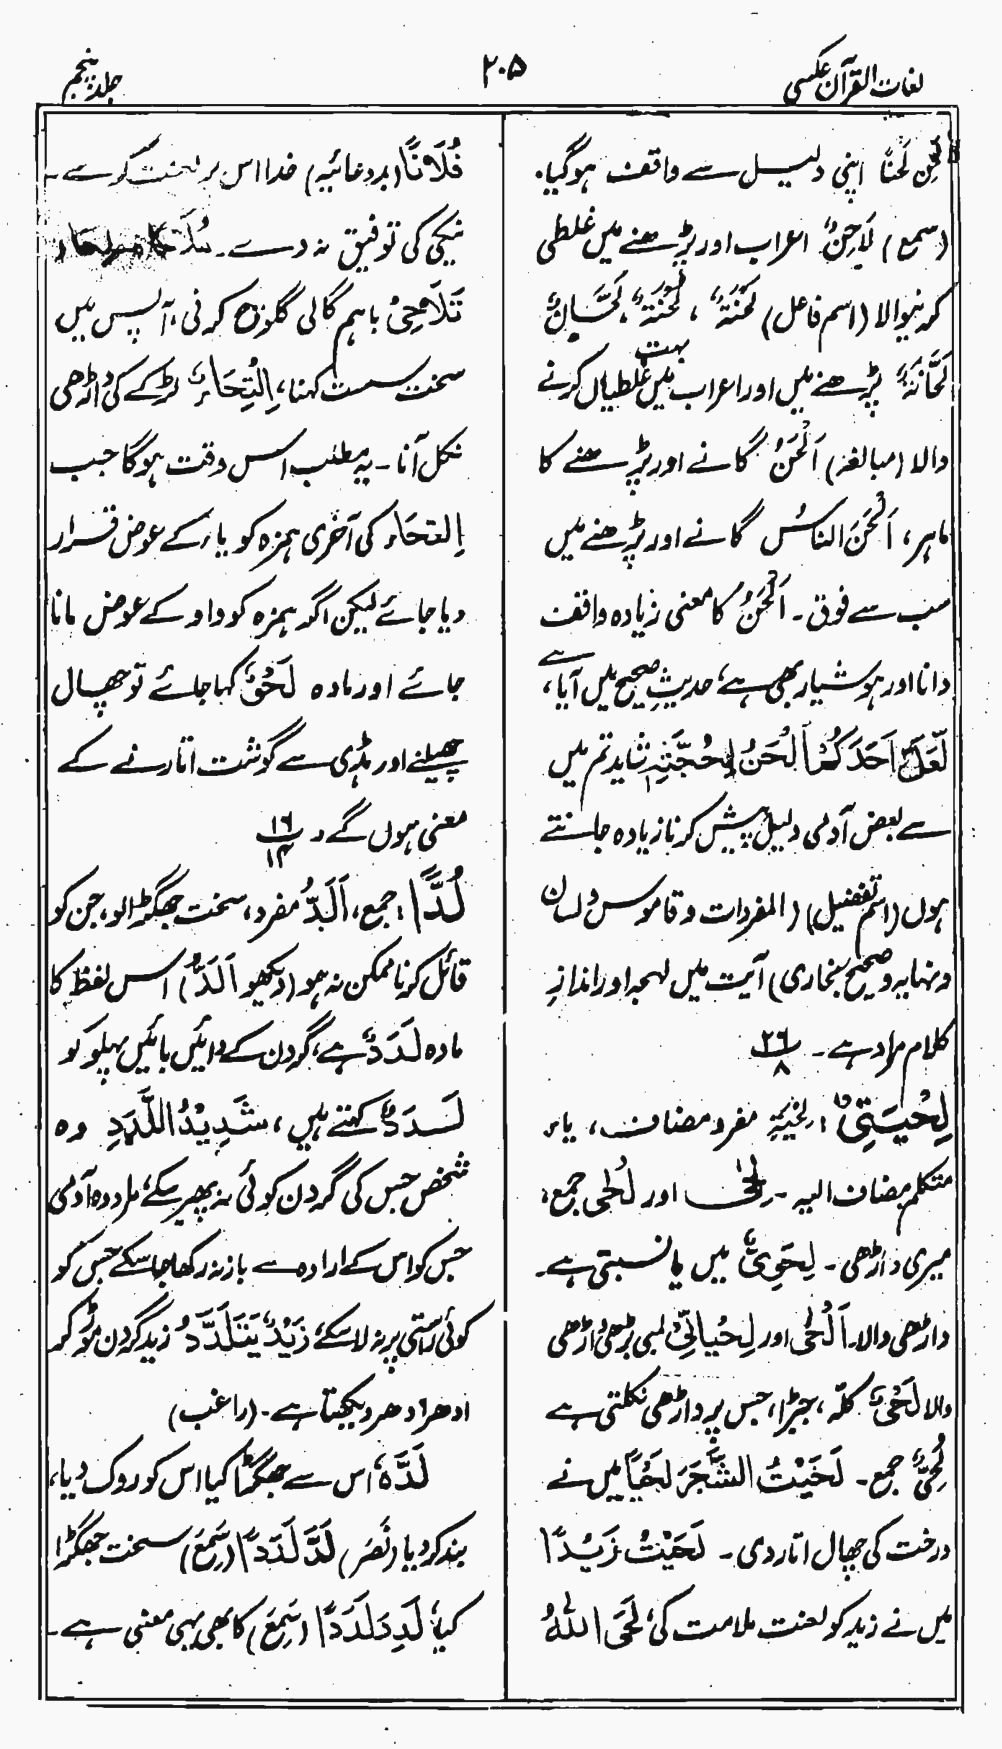 لغات القرآن عکسی
۲۰۵
جلد پنجم
لَحِنَ لَحَنًا اپنی دلیل سے واقف ہوگیا.
(سمع) لَاحِنٌ اعراب اور پڑھنے میں غلطی
کرنیوالا (اسم فاعل) لُحَنَةٌ ، لُحْنَةٌ، لَحَّانٌ
لَحَّانَةٌ پڑھنے میں اور اعراب میں بہت غلطیاں کرنے
والا (مبالغہ) اَلْحَنُ گانے اور پڑھنے کا
ماہر، اَلْحَنُ النَّاسِ گانے اور پڑھنے میں
سب سے فوق۔ اَلْحَنُ کا معنی زیادہ واقف
دانا اور ہوشیار بھی ہے، حدیثِ صحیح میں آیا ہے،
لَعَلَّ اَحَدَكُمْ اَلْحَنُ بِحُجَّتِہٖ شاید تم میں
سے بعض آدمی دلیل پیش کرنا زیادہ جانتے
ہوں (اسم تفضیل) (المفردات و قاموس و لسان
و نہایہ و صحیح بخاری) آیت میں لہجہ اور اندازِ
کلام مراد ہے۔ ۲۶/۸
لِحْيَتِیْ : لِحْیَۃِ مفرد مضاف، یاء
متکلم مضاف الیہ۔ لِحًی اور لُحًی جمع،
میری داڑھی۔ لِحَوِیٌّ میں یا نسبتی ہے۔
داڑھی والا۔ اَلْحٰی اور لِحْیَانِیٌّ لمبی بڑھی داڑھی
والا لَحْیٌ کلّہ، جبڑا، جس پر داڑھی نکلتی ہے
لُحِیٌّ جمع۔ لَحَیْتُ الشَّجَرَ لَحْیًا میں نے
درخت کی چھال اتار دی۔ لَحَیْتُ زَیْدًا
میں نے زید کو لعنت ملامت کی، لَحَی اللہُ
فُلَانًا (بددعائیہ) خدا اس پر لعنت کرے۔
نیکی کی توفیق نہ دے۔
تَلَاحِیْ باہم گالی گلوزج کرنی، آپس میں
سخت سست کہنا، اِلْتِحَاءٌ لڑکے کی داڑھی
نکل آنا۔ یہ مطلب اس وقت ہوگا جب
اِلتحَاء کی آخری ہمزہ کو یاء کے عوض قرار
دیا جائے لیکن اگر ہمزہ کو واو کے عوض مانا
جائے اور مادہ لَحْوٌ کہا جائے تو چھال
چھیلنے اور ہڈی سے گوشت اتارنے کے
معنی ہوں گے۔ ۱۶/۱۴
لُدًّا : جمع، اَلَدُّ مفرد، سخت جھگڑالو، جن کو
قائل کرنا ممکن نہ ہو (دیکھو اَلَدُّ) اس لفظ کا
مادہ لَدَدٌ ہے، گردن کے دائیں بائیں پہلو کو
لَدَدٌ کہتے ہیں، شَدِیْدُ اللَّدَدِ وہ
شخص جس کی گردن کوئی نہ پھیر سکے، مراد وہ آدمی
جس کو اس کے ارادہ سے باز نہ رکھا جا سکے جس کو
کوئی راستی پر نہ لا سکے، زَیْدٌ یَتَلَدَّدُ زید گردن موڑ کر
ادھر اُدھر دیکھتا ہے۔ (راغب)
لَدَّہٗ اس سے جھگڑا کیا اس کو روک دیا،
بند کر دیا (نَصَرَ) لَدَّ لَدَدًا (سَمِعَ) سخت جھگڑا
کیا، لَدِدَ لَدَدًا (سَمِعَ) کا بھی یہی معنی ہے۔